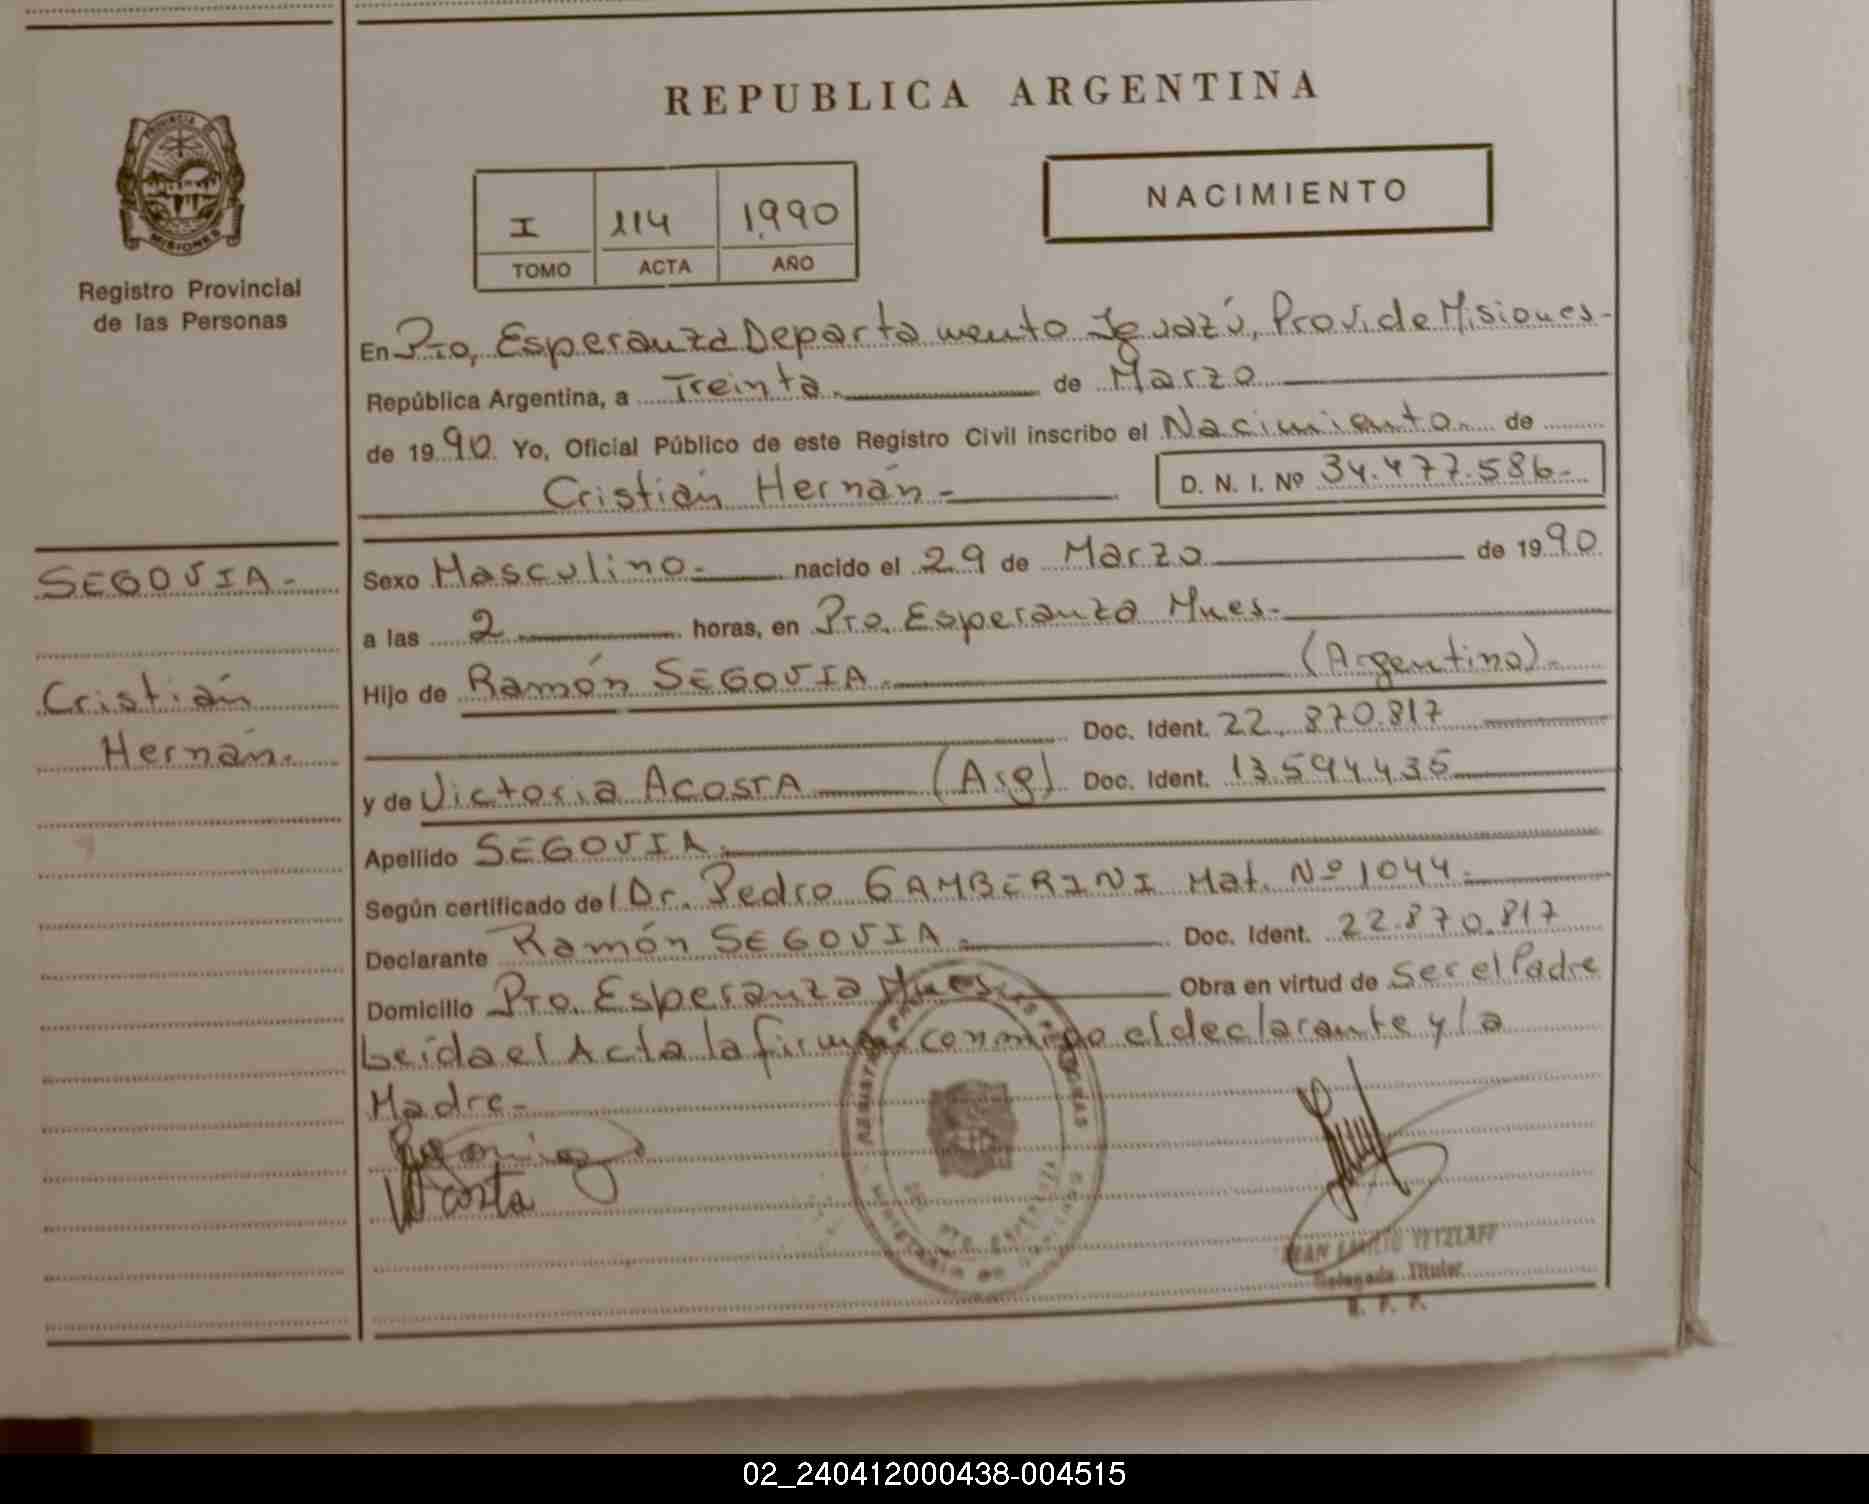 REPUBLICA ARGENTINA
PROVINCIA DE
MISIONES
Registro Provincial
de las Personas
I 114 1990
TOMO ACTA AÑO
NACIMIENTO
En Pto, Esperanza Departamento Iguazú, Prov. de Misiones-
República Argentina, a Treinta. de Marzo
de 1990 Yo, Oficial Público de este Registro Civil inscribo el Nacimiento. de
Cristián Hernán- D. N. I. Nº 34.477.586-
SEGOVIA-
Cristián
Hernán.
Sexo Masculino. nacido el 29 de Marzo de 1990
a las 2 horas, en Pto. Esperanza Mnes-
Hijo de Ramón SEGOVIA. (Argentino)-
Doc. Ident. 22.870.817
y de Victoria ACOSTA (Arg). Doc. Ident. 13.594.435
Apellido SEGOVIA.
Según certificado del Dr. Pedro GAMBERINI Mat. Nº 1044.
Declarante Ramón SEGOVIA. Doc. Ident. 22.870.817
Domicilio Pto. Esperanza Mnes Obra en virtud de Ser el Padre
Leida el Acta la firman conmigo el declarante y la
Madre-
Acosta
PTO. ESPERANZA
Delegado Titular
R. P. P.
02_240412000438-004515